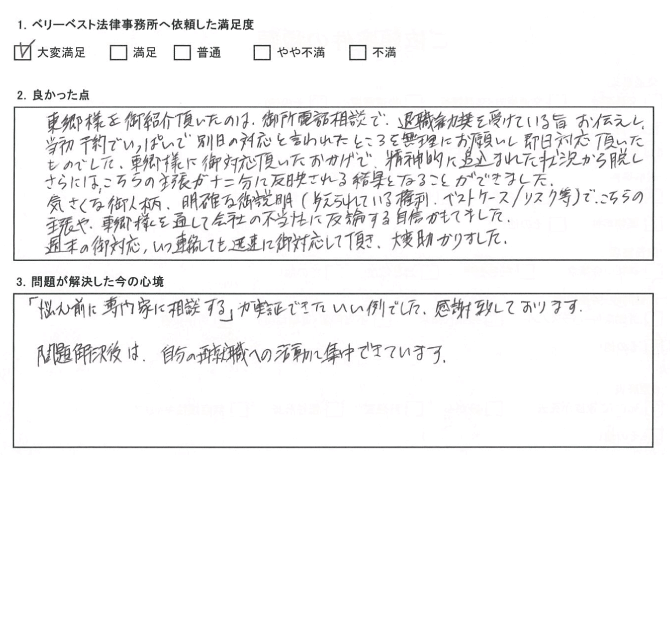 1. ベリーベスト法律事務所へ依頼した満足度
☑ 大変満足 □ 満足 □ 普通 □ やや不満 □ 不満
2. 良かった点
東郷様を御紹介頂いたのは、御所電話相談で、退職勧奨を受けている旨お伝えし、
当初予約でいっぱいで別日の対応と言われたところを無理にお願いし即日対応頂いた
ものでした。東郷様に御対応頂いたおかげで、精神的に追込まれた状況から脱し
さらには、こちらの主張が十二分に反映される結果となることができました。
気さくな御人柄、明確な御説明(与えられている権利、ベストケース/リスク等)で、こちらの
主張や、東郷様を通して会社の不当性に反論する自信がもてました。
週末の御対応、いつ連絡しても迅速に御対応して頂き、大変助かりました。
3. 問題が解決した今の心境
「悩む前に専門家に相談する」が実証できたいい例でした、感謝致しております。
問題解決後は、自分の再就職への活動に集中できています。